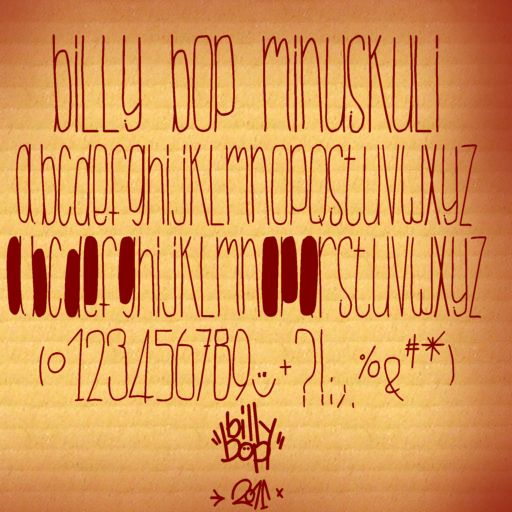 biLLy bop minUSKULi
abCdefghijKLmnopQrStUVWXyZ
abCdefghijKLmnopqrStUVWXyZ
(0123456789ü+?!;,.%&#*)
"billy
bop"
→ 2011 ×